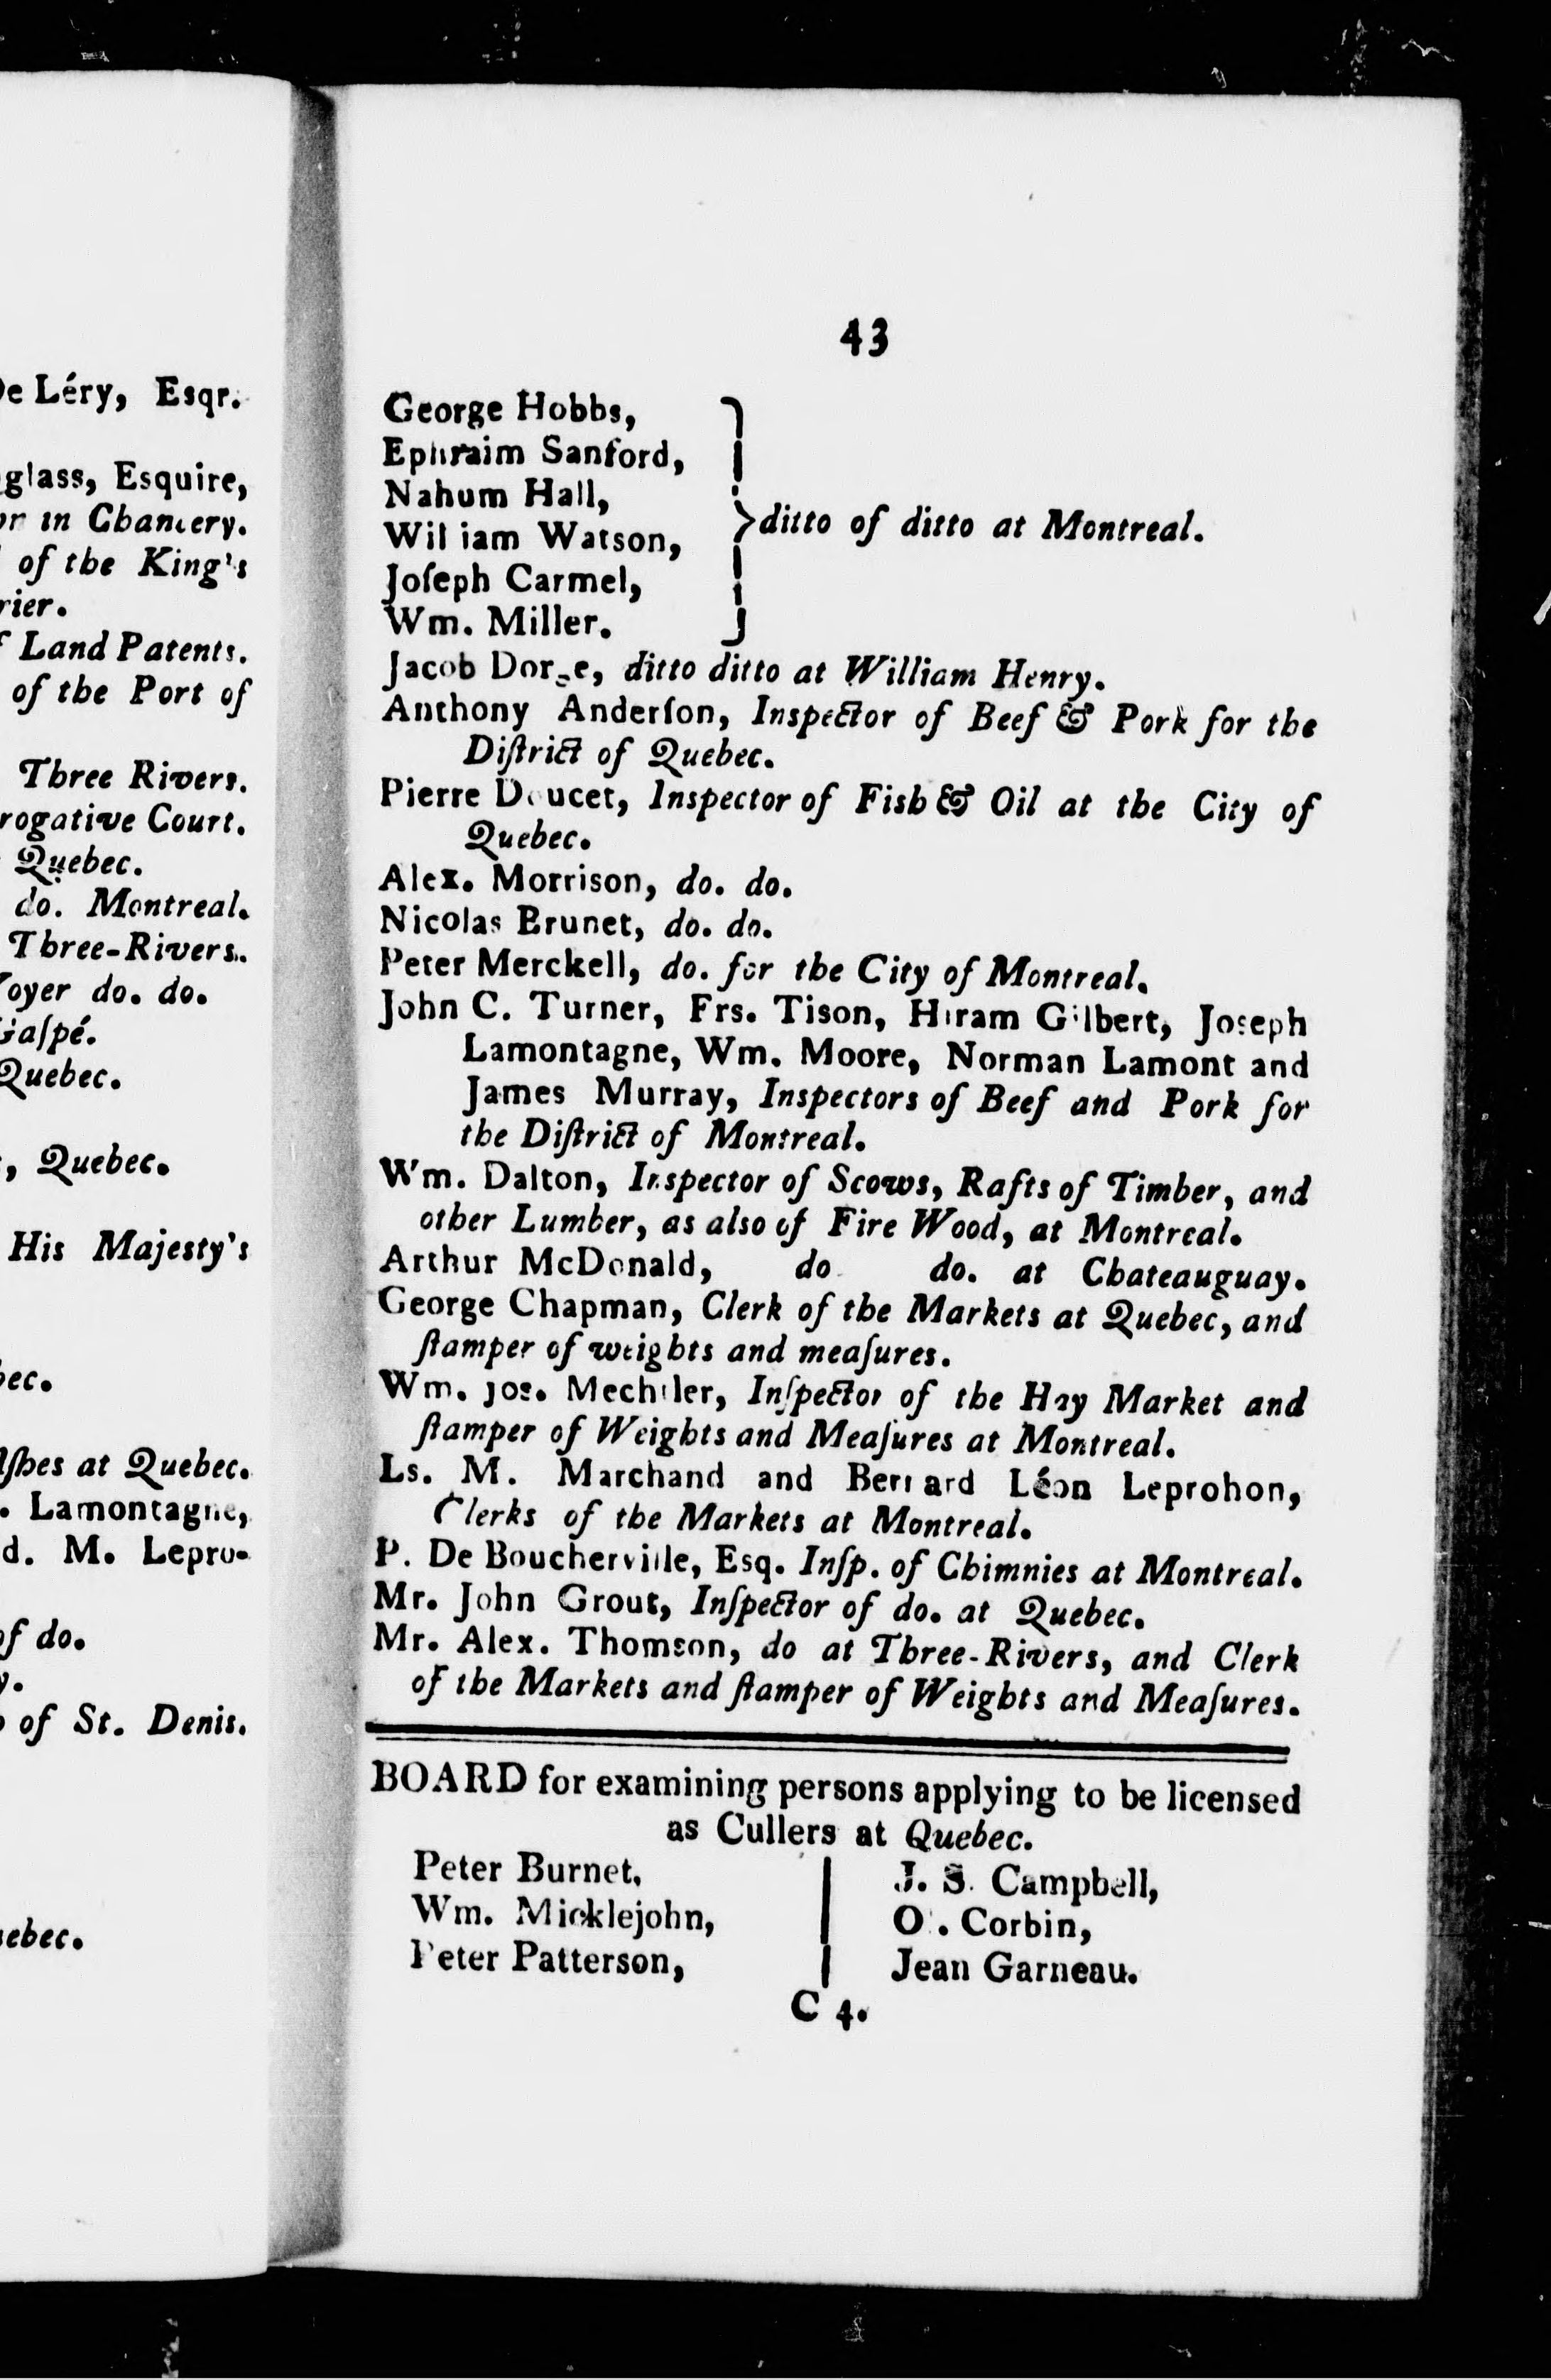 De Léry, Esqr.
glass, Esquire,
or in Chancery.
of the King's
rier.
Land Patents.
of the Port of
Three Rivers.
rogative Court.
Quebec.
do. Montreal.
Three-Rivers.
oyer do. do.
Gaſpé.
Quebec.
, Quebec.
His Majesty's
bec.
Aſhes at Quebec.
. Lamontagne,
d. M. Lepro-
of do.
y.
of St. Denis.
uebec.
43
George Hobbs,
Ephraim Sanford,
Nahum Hall,
William Watson,
} ditto of ditto at Montreal.
Joſeph Carmel,
Wm. Miller.
Jacob ditto ditto at William Henry.
Anthony Anderſon, Inspector of Beef & Pork for the
Diſtrict of Quebec.
Pierre Doucet, Inspector of Fish & Oil at the City of
Quebec.
Alex. Morrison, do. do.
Nicolas Brunet, do. do.
Peter Merckell, do. for the City of Montreal.
John C. Turner, Frs. Tison, Hiram Gilbert, Joseph
Lamontagne, Wm. Moore, Norman Lamont and
James Murray, Inspectors of Beef and Pork for
the Diſtrict of Montreal.
Wm. Dalton, Inspector of Scows, Rafts of Timber, and
other Lumber, as also of Fire Wood, at Montreal.
Arthur McDonald, do do. at Chateauguay.
George Chapman, Clerk of the Markets at Quebec, and
ſtamper of weights and meaſures.
Wm. Jos. Mechtler, Inſpector of the Hay Market and
ſtamper of Weights and Meaſures at Montreal.
Ls. M. Marchand and Bernard Léon Leprohon,
Clerks of the Markets at Montreal.
P. De Boucherville, Esq. Inſp. of Chimnies at Montreal.
Mr. John Grout, Inſpector of do. at Quebec.
Mr. Alex. Thomson, do at Three-Rivers, and Clerk
of the Markets and ſtamper of Weights and Meaſures.
BOARD for examining persons applying to be licensed
as Cullers at Quebec.
Peter Burnet,
Wm. Micklejohn,
Peter Patterson,
J. S. Campbell,
Corbin,
Jean Garneau.
C 4.